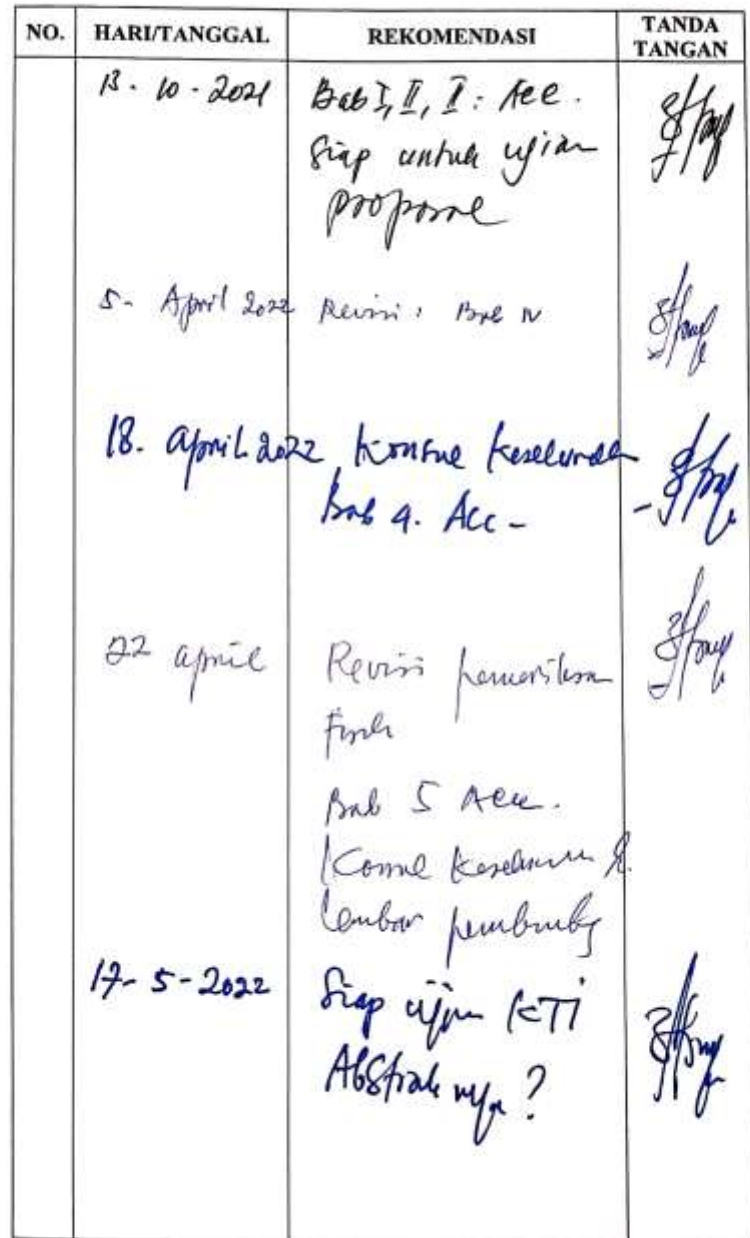 NO. HARI/TANGGAL REKOMENDASI TANDA TANGAN
13 - 10 - 2021 Bab I, II, : Acc.
Siap untuk ujian
proposal
5 - April 2022 Revisi : Bab IV
18. April 2022 Konsul keseluruhan
Bab 4. Acc -
22 April Revisi pemeriksaan
Fisik
Bab 5 Acc.
Konsul keseluruhan &
lembar pembimbing
17 - 5 - 2022 Siap ujian KTI
Abstrak nya ?